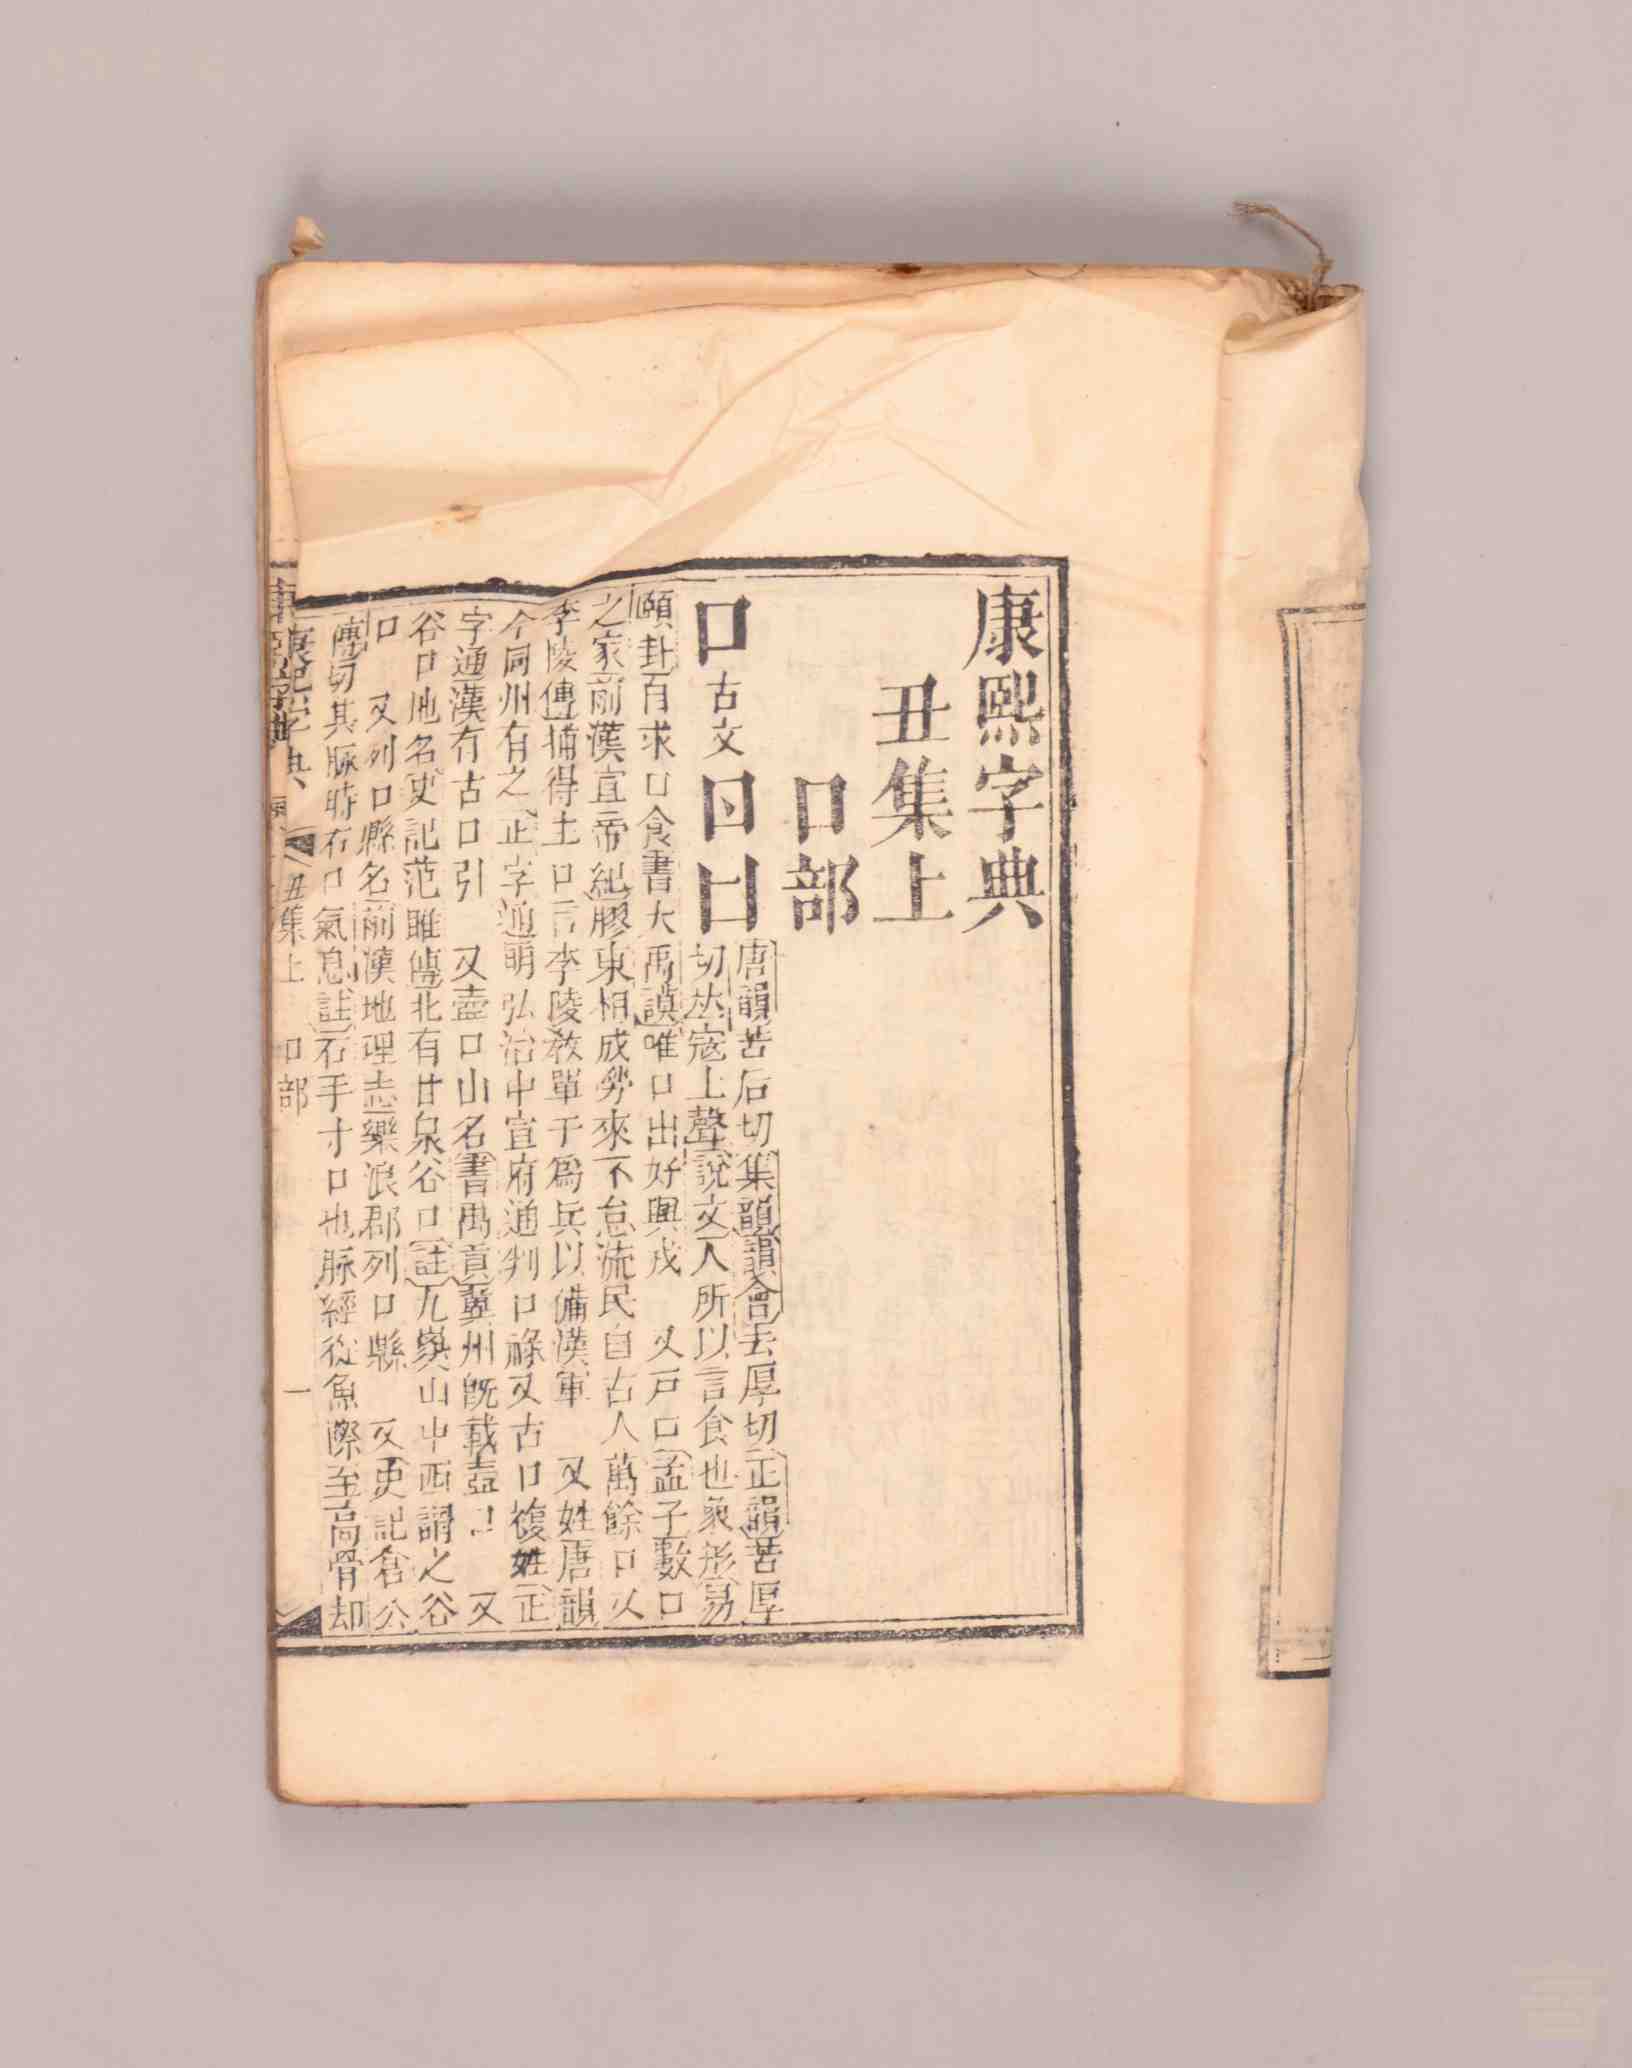 康熙字典
丑集上
口部
口 古文 唐韻苦后切集韻韻會去厚切正韻苦厚
切𠀤寇上聲說文人所以言食也象形易
頤卦自求口食書大禹謨唯口出好興戎 又戸口孟子數口
之家前漢宣帝紀膠東相成勞來不怠流民自占八萬餘口又
李陵傳捕得生口言李陵敎單于爲兵以備漢軍 又姓唐韻
今同州有之正字通明弘治中宣府通判口祿又古口複姓正
字通漢有古口引 又壺口山名書禹貢冀州旣載壺口 又
谷口地名史記范雎傳北有甘泉谷口註九嵏山中西謂之谷
口 又列口縣名前漢地理志樂浪郡列口縣 又史記倉公
傳切其脈時右口氣急註右手寸口也脈經從魚際至高骨却
康熙字典 丑集上 口部 一